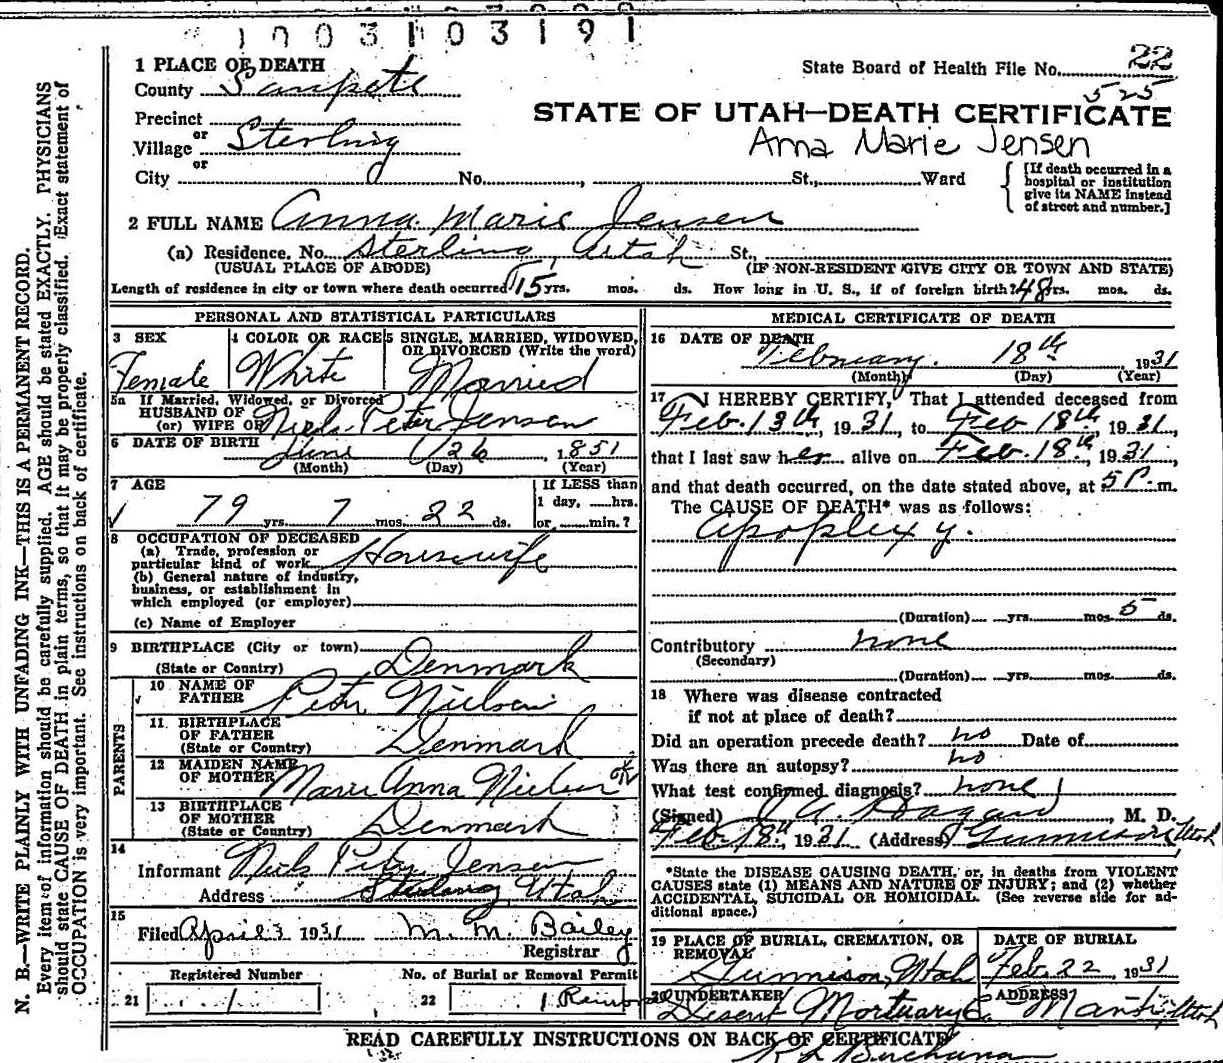 1003103191
1 PLACE OF DEATH
County Sanpete
State Board of Health File No. 22
525
Precinct
or
Village Sterling
or
STATE OF UTAH—DEATH CERTIFICATE
Anna Marie Jensen
City No. , St., Ward
[If death occurred in a
hospital or institution
give its NAME instead
of street and number.]
2 FULL NAME Anna Marie Jensen
(a) Residence, No. Sterling, Utah St.,
(USUAL PLACE OF ABODE) (IF NON-RESIDENT GIVE CITY OR TOWN AND STATE)
Length of residence in city or town where death occurred 15 yrs. mos. ds. How long in U. S., if of foreign birth? 48 yrs. mos. ds.
PERSONAL AND STATISTICAL PARTICULARS
3 SEX
Female
4 COLOR OR RACE
White
5 SINGLE, MARRIED, WIDOWED,
OR DIVORCED (Write the word)
Married
5a If Married, Widowed, or Divorced
HUSBAND OF
(or) WIFE OF Niels Peter Jensen
6 DATE OF BIRTH June 26, 1851
(Month) (Day) (Year)
7 AGE
79 yrs. 7 mos. 22 ds.
If LESS than
1 day, hrs.
or min.?
8 OCCUPATION OF DECEASED
(a) Trade, profession or
particular kind of work Housewife
(b) General nature of industry,
business, or establishment in
which employed (or employer)
(c) Name of Employer
9 BIRTHPLACE (City or town)
(State or Country) Denmark
PARENTS
10 NAME OF
FATHER Peter Nielsen
11 BIRTHPLACE
OF FATHER
(State or Country) Denmark
12 MAIDEN NAME
OF MOTHER Marie Anna Nielsen
13 BIRTHPLACE
OF MOTHER
(State or Country) Denmark
14
Informant Niels Peter Jensen
Address Sterling, Utah
15
Filed April 3 1931 M. M. Bailey
Registrar
Registered Number No. of Burial or Removal Permit
21 1 22 1
MEDICAL CERTIFICATE OF DEATH
16 DATE OF DEATH
February 18th 1931
(Month) (Day) (Year)
17 I HEREBY CERTIFY, That I attended deceased from
Feb. 13th, 1931, to Feb 18th, 1931,
that I last saw her alive on Feb. 18th, 1931,
and that death occurred, on the date stated above, at 5 P. m.
The CAUSE OF DEATH* was as follows:
Apoplexy.
(Duration) yrs. mos. 5 ds.
Contributory none
(Secondary)
(Duration) yrs. mos. ds.
18 Where was disease contracted
if not at place of death?
Did an operation precede death? no Date of
Was there an autopsy? no
What test confirmed diagnosis? none
(Signed) Hagan, M. D.
Feb. 18th, 1931 (Address) Gunnison Utah
*State the DISEASE CAUSING DEATH, or, in deaths from VIOLENT
CAUSES state (1) MEANS AND NATURE OF INJURY; and (2) whether
ACCIDENTAL, SUICIDAL OR HOMICIDAL. (See reverse side for ad-
ditional space.)
19 PLACE OF BURIAL, CREMATION, OR
REMOVAL
Gunnison, Utah
DATE OF BURIAL
Feb. 22 1931
20 UNDERTAKER
Deseret Mortuary Co.
ADDRESS
Manti, Utah
READ CAREFULLY INSTRUCTIONS ON BACK OF CERTIFICATE
N. B.—WRITE PLAINLY WITH UNFADING INK—THIS IS A PERMANENT RECORD.
Every item of information should be carefully supplied. AGE should be stated EXACTLY. PHYSICIANS
should state CAUSE OF DEATH in plain terms, so that it may be properly classified. Exact statement of
OCCUPATION is very important. See instructions on back of certificate.